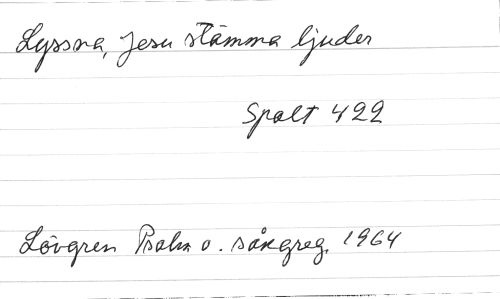 Lyssna, Jesu stämma ljuder
Spalt 422
Lövgren Psalm o. sångreg. 1964